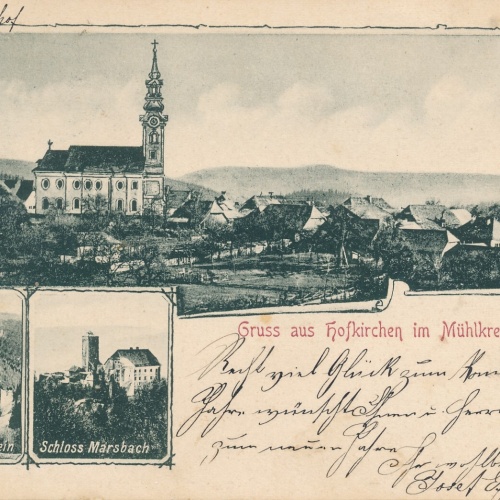 hof
Gruss aus Hofkirchen im Mühlkre
ein
Schloss Marsbach
Recht viel Glück zum
Jahre wünscht Ihnen u Herrn
zum neuen Jahre
Ihr
Josef